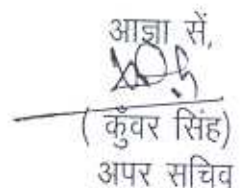 आज्ञा सें,
( कुँवर सिंह)
अपर सचिव